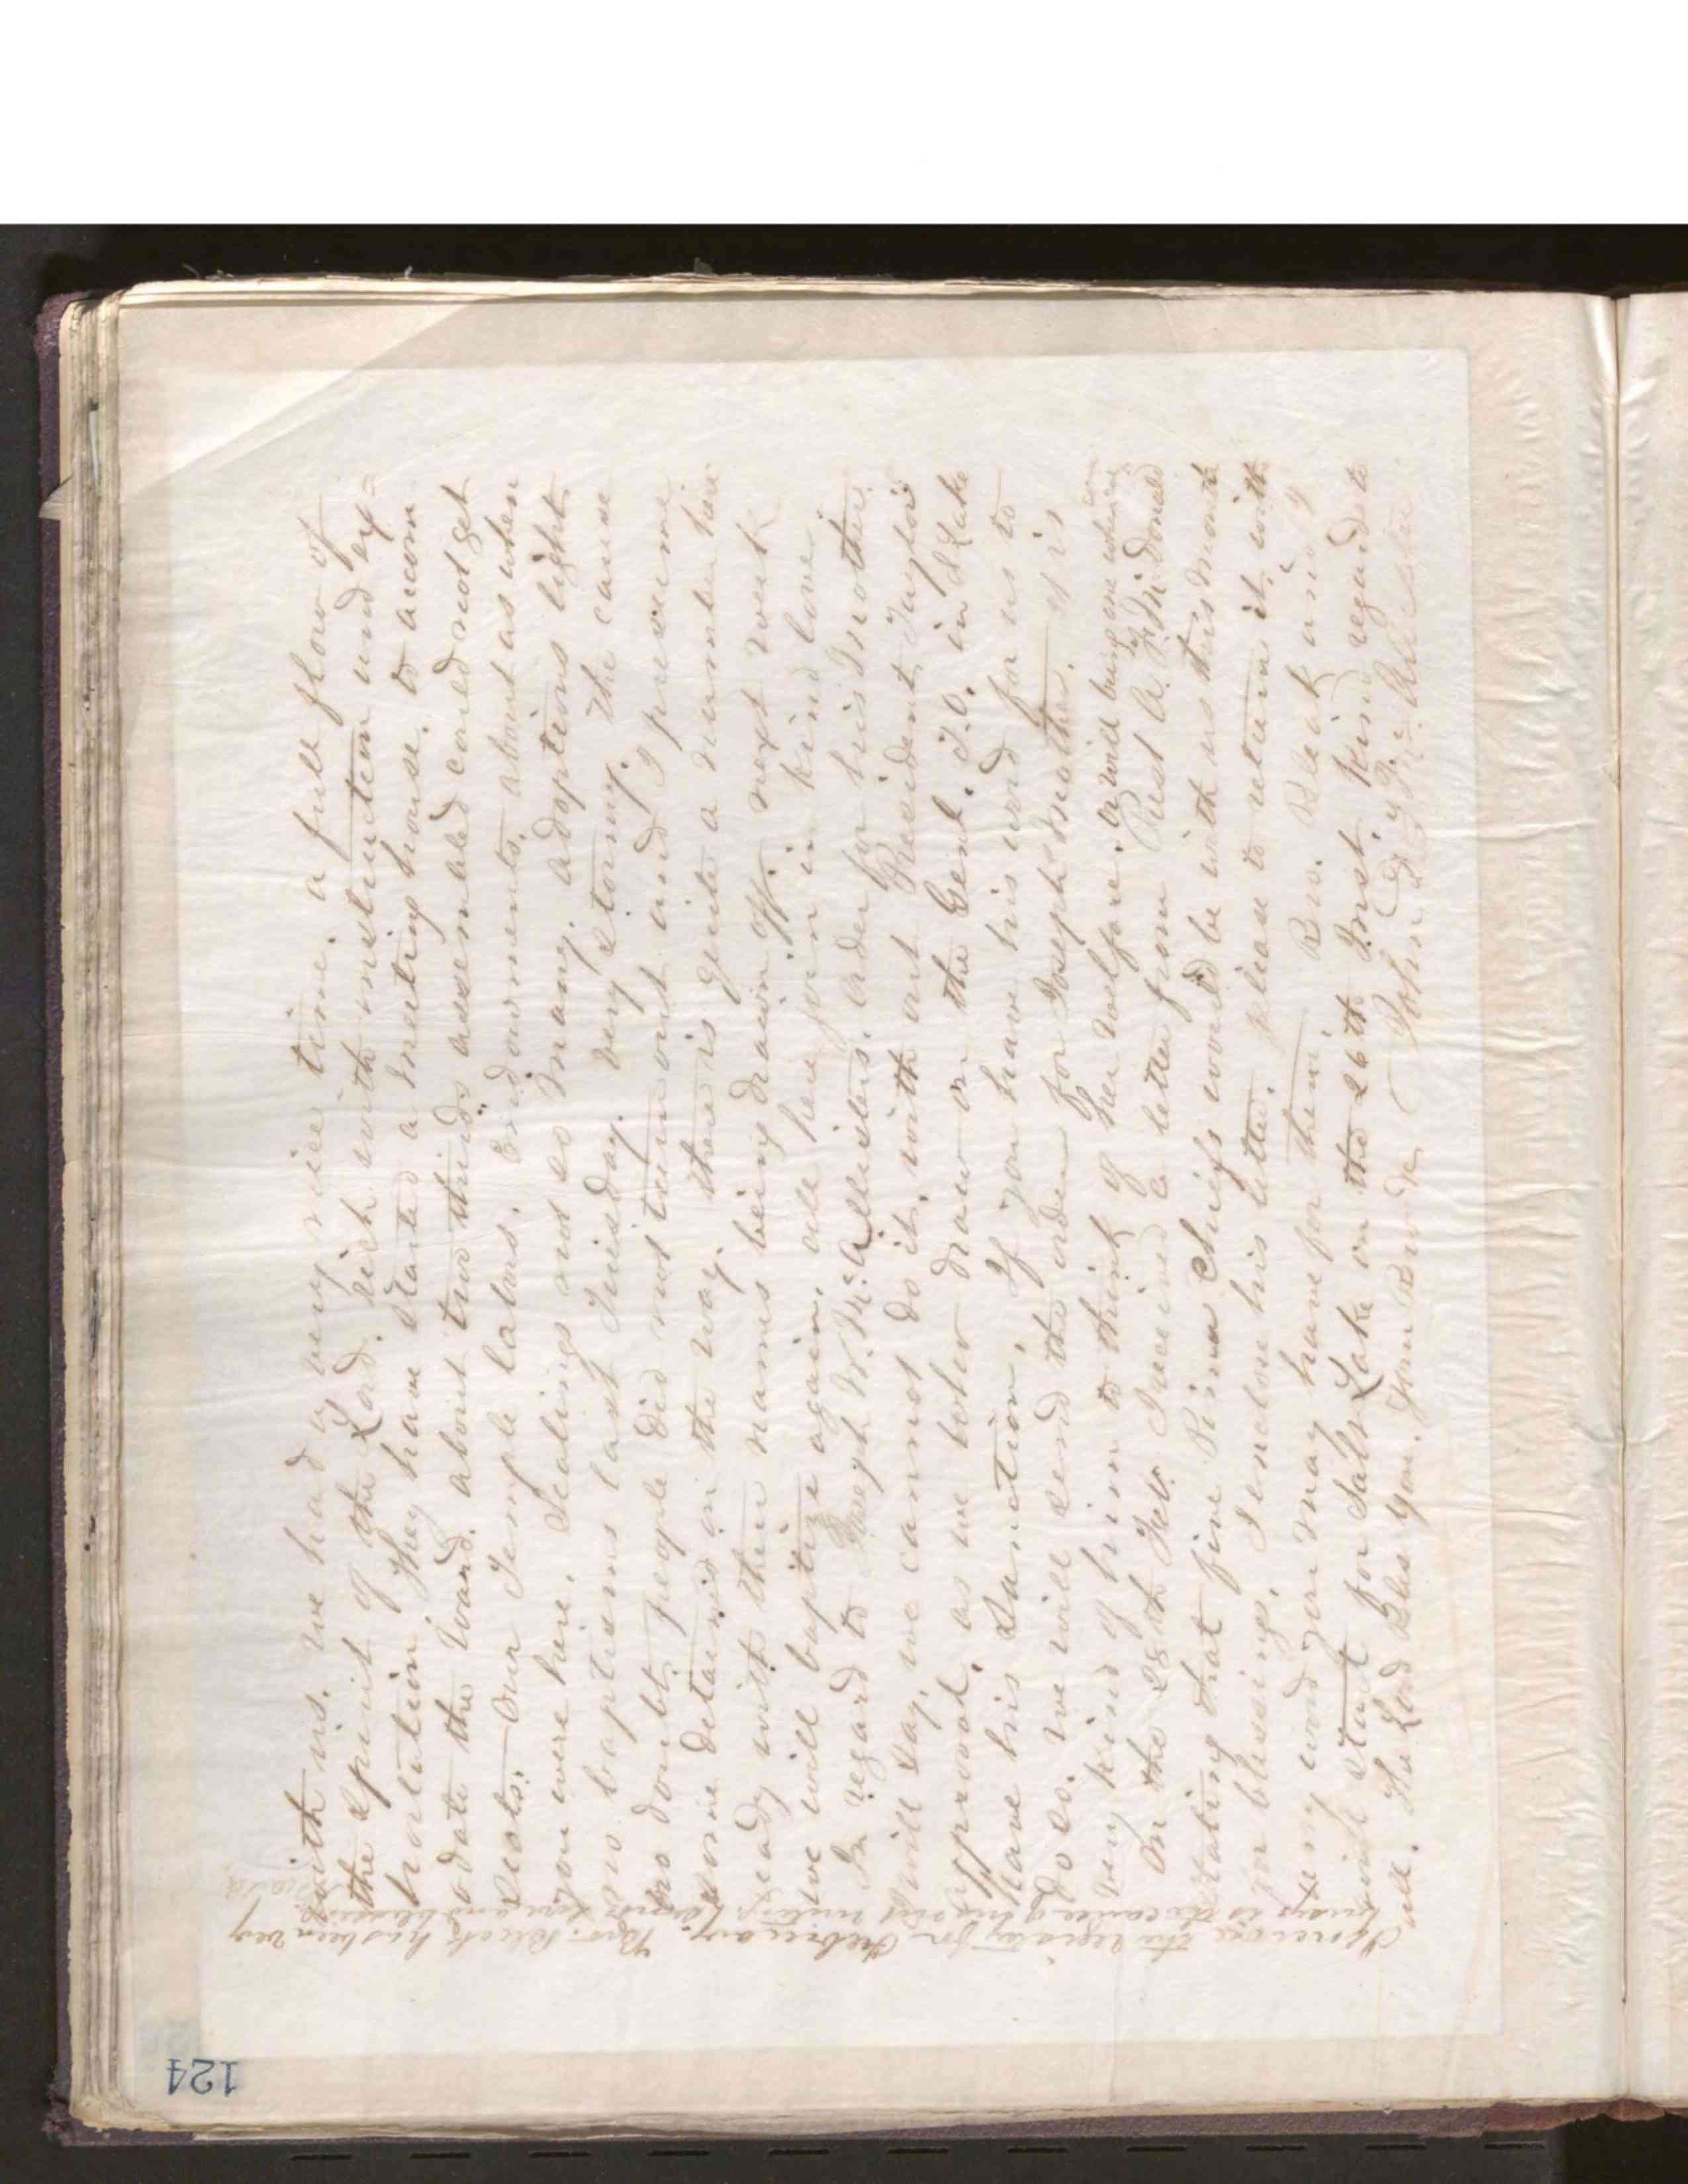 124
with us. we had a very nice time. a full flow of
the spirit of the Lord. rich with instruction and ex=
hortation They have started a meeting house. to accom
odate the ward. about two thirds assembled could not get
seats. Our Temple labors. Endowments. about as when
you were here. Sealings not so many. adoptions light
no baptisms last Tuesday. very stormy. The cause
no doubt people did not turn out and I presume
some detained on the way. there is quite a number here
ready with their names being drawn off. next week
we will baptize again. all here join in kind love
In regard to Joseph W. McAllisters. order for his Mother
will say, we cannot do it, with out President Taylors
approval. as we to draw on the Genl. T.O. in S Lake
have his Sanction. If you have his word for us to
do so. we will send the order for Joseph's Mother. it is
very kind of him to think of her welfare.
On the 28th Feb. I received a letter from Prest A. F. McDonald
stating that five Pima Chiefs would be with us this month
for blessings. I enclose his letter. please to return it, with
any word you may have for them. Bro. Bleak and I
will start for Salt Lake on the 26th Inst. kind regards to
all. The Lord Bless you. Your Bro &c John D. T. McAllister
I enclose the for February. Bro. Bleak has been very
busy is the cause of his not writing love and blessing